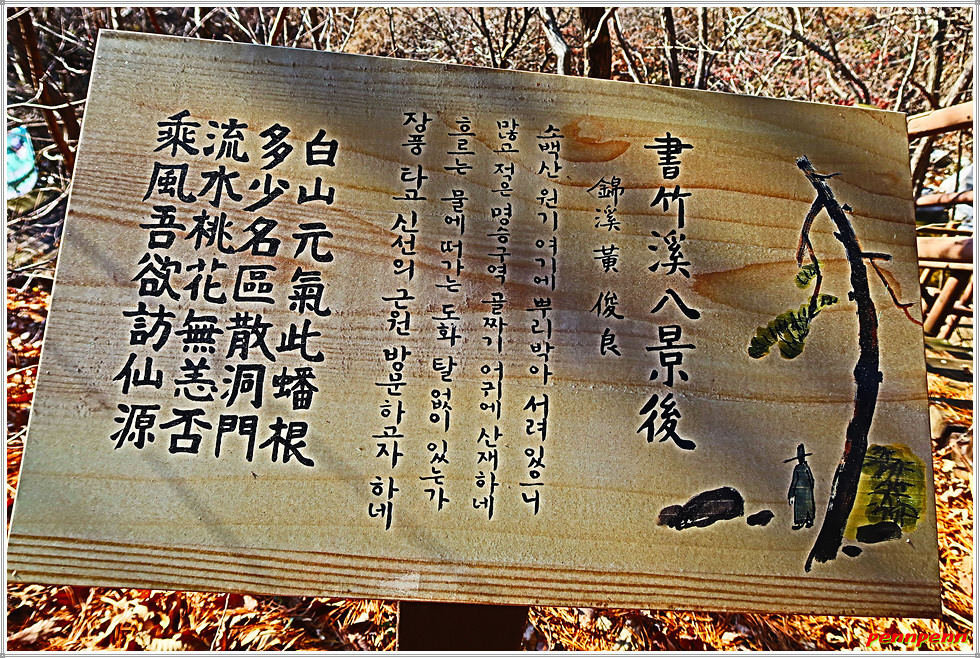 書竹溪八景後
錦溪 黃俊良
소백산 원기 여기에 뿌리박아 서려 있으니
많고 적은 명승구역 골짜기 어구에 산재하네
흐르는 물에 떠가는 도화 탈 없이 있는가
장풍 타고 신선의 근원 방문하고자 하네
白山元氣此蟠根
多少名區散洞門
流水桃花無恙否
乘風吾欲訪仙源
pennpenn